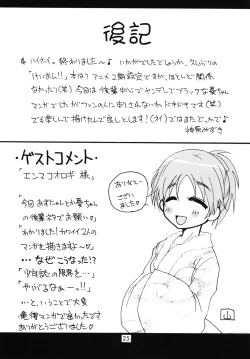 後記
ハイホイ。終わりました〜♪いかがでしたでしょうか。久しぶりの
「けいおん!!」本は?アニメ2期設定ですが、ほとんど関係
なかったり(笑)今回は後輩中心でヤンデレでブラックな葵ちゃん
マンガでしたがファンの人に刺されないか、ドキドキです(笑)
でも楽しんで描けたんで良しとします!(オイ)ではまたどこかで♪
・ゲストコメント・
「エンマコオロギ 様」
「今回あずにゃんとか憂ちゃん
の後輩ネタでお願い。」
「わかりました!カワイイ2人の
マンガを描きますよ〜」
……なぜこうなった!?
「少年誌の限界を…」
「やぶるなぁーっ!!」
…と、いうことで大変
俺得マンガで良かったです
ありがとうございました
ありがとー
ございました
山
25